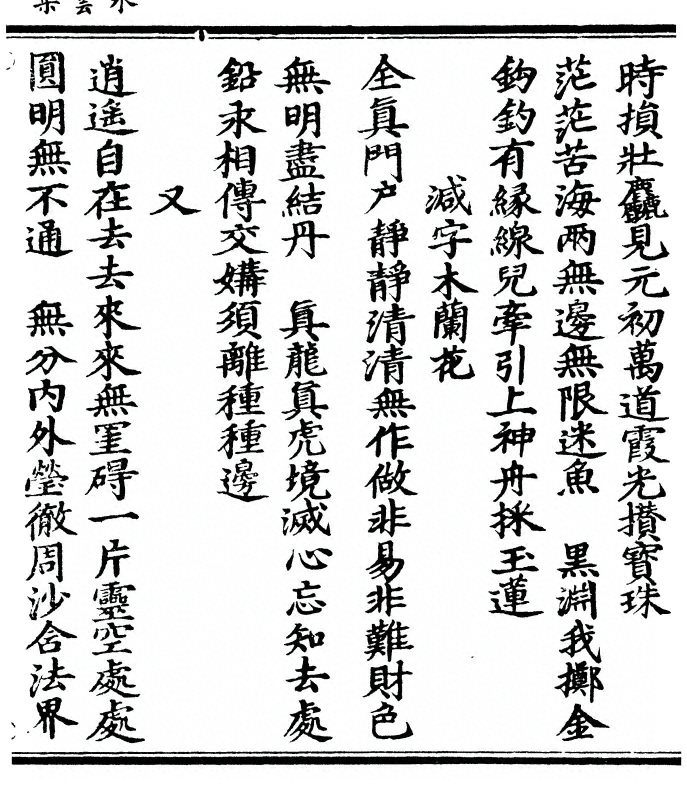 時損壯見元初萬道霞光攅寶珠
茫茫苦海兩無邊無限迷魚　黒淵我擲金
鈎釣有縁線兒牽引上神舟採玉蓮
減字木蘭花
全眞門户靜靜清清無作做非易非難財色
無明盡結丹　眞龍眞虎境滅心忘知去處
鉛汞相傳交媾須離種種邊
又
逍遥自在去去來來無罣碍一片靈空處處
圓明無不通　無分内外瑩徹周沙含法界